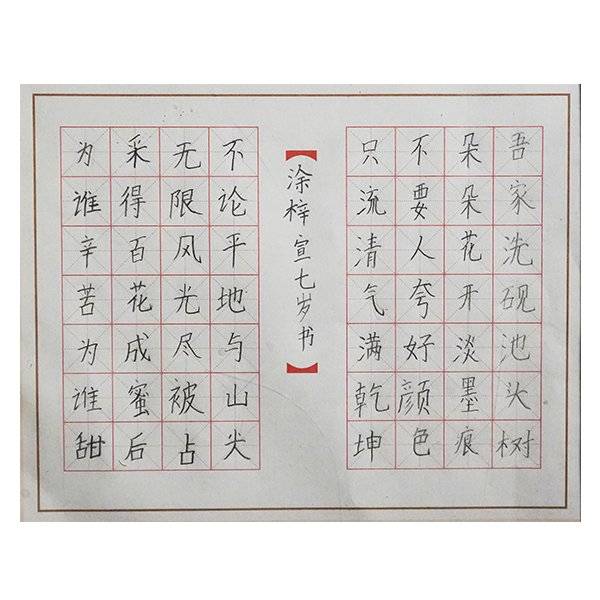 吾家洗砚池头树
朵朵花开淡墨痕
不要人夸好颜色
只流清气满乾坤
涂梓宣七岁书
不论平地与山尖
无限风光尽被占
采得百花成蜜后
为谁辛苦为谁甜